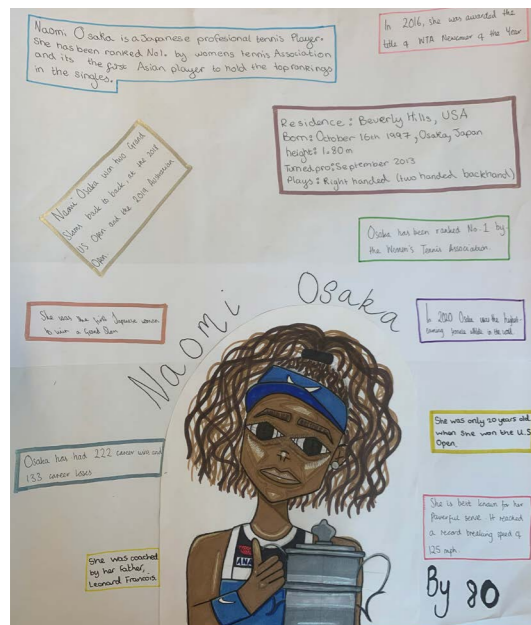 Naomi Osaka is a Japanese profesional tennis Player.
She has been ranked No1. by womens tennis Association
and its the first Asian player to hold the top rankings
in the singles.
In 2016, she was awarded the
title of WTA Newcomer of the Year
Residence: Beverly Hills, USA
Born: October 16th 1997, Osaka, Japan
height: 1.80m
Turned pro: September 2013
Plays: Right handed (two handed backhand)
Naomi Osaka won two Grand
Slams back to back, at the 2018
US Open and the 2019 Australian
Open
Osaka has been ranked No.1 by
the Women's Tennis Association.
She was the first Japanese woman
to win a Grand Slam
In 2020 Osaka was the highest-
earning female athlete in the world.
Naomi Osaka
She was only 20 years old
when She won the U.S
Open.
Osaka has had 222 career wins and
133 career losses
She is best known for her
Powerful serve. It reached
a record breaking speed of
125 mph.
She was coached
by her father,
Leonard Francois.
ANA
By 80